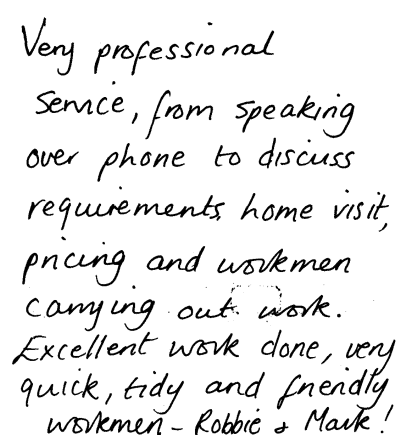 Very professional
service, from speaking
over phone to discuss
requirements, home visit,
pricing and workmen
carrying out work.
Excellent work done, very
quick, tidy and friendly
workmen - Robbie & Mark!